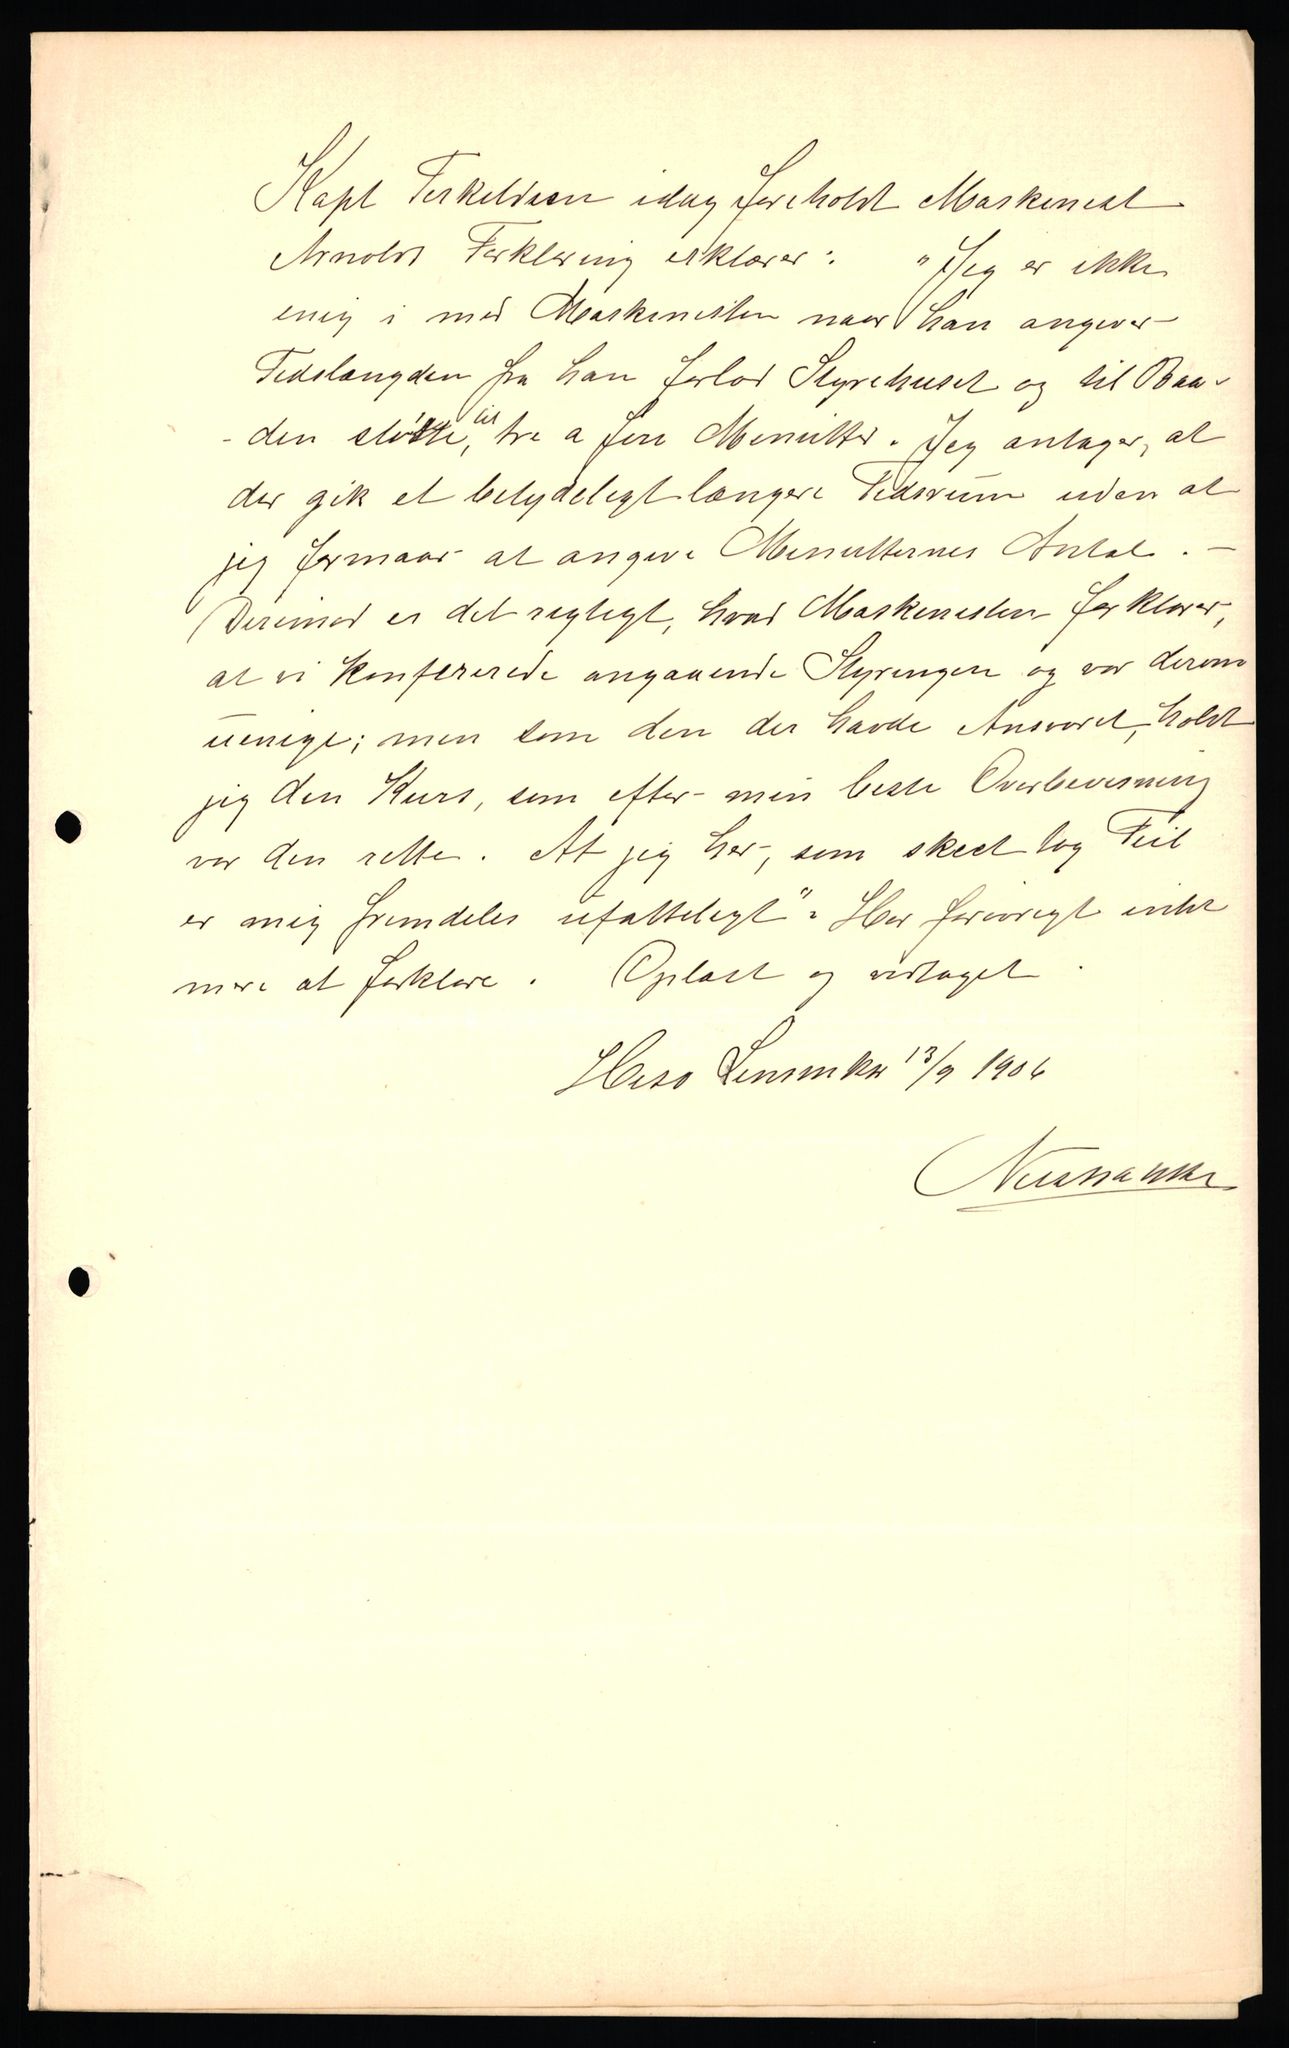 Kapt Terkeldsen idag foreholdt Maskinist
Arnolds Forklaring erklærer: "Jeg er ikke
enig i med Maskinisten naar han angiver
Tidslængden fra han forlod Styrehuset og til Baa-
-den stødte, til tre a fire Minutter. Jeg antager, at
der gik et betydeligt længere Tidsrum uden at
jeg formaar at angive Minutternes Antal. —
Derimod er det rigtigt, hvad Maskinisten forklarer,
at vi konfererede angaaende Styringen og var derom
uenige; men som den der havde Ansvaret, holdt
jeg den Kurs, som efter min beste Overbevisning
var den rette. At jeg her, som skeet tog Feil
er mig fremdeles ufatteligt". Har forøvrigt intet
mere at forklare. Oplæst og vedtaget.
13/9 1906